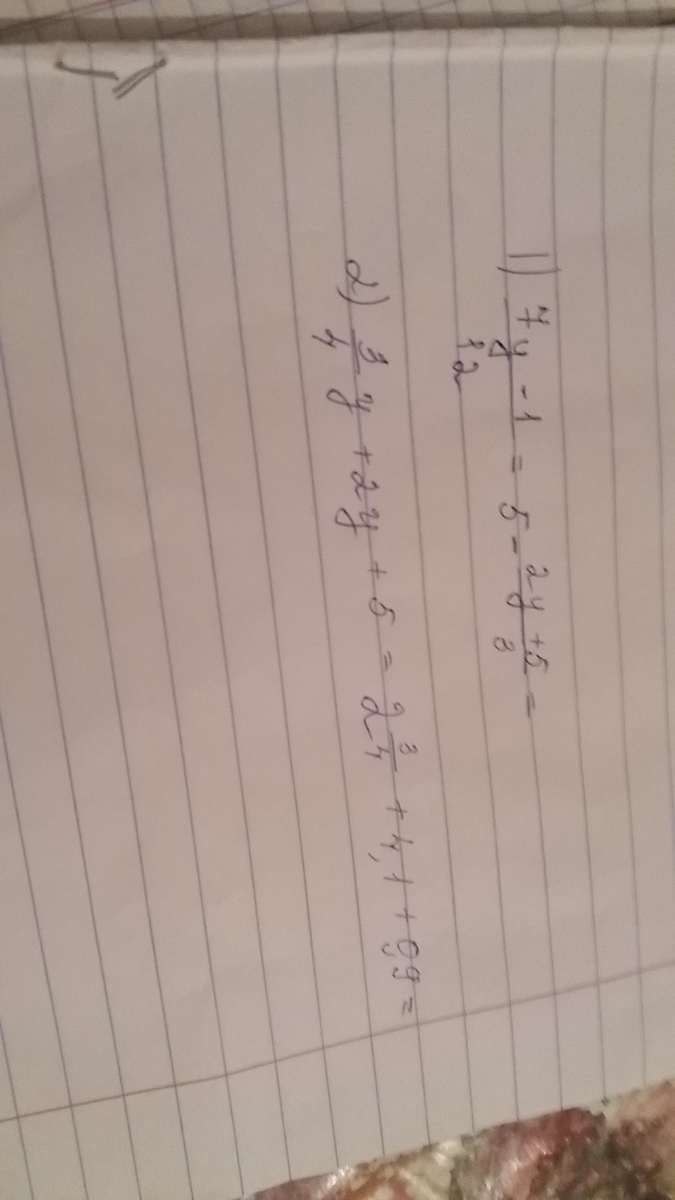 1) \frac{7y-1}{12} = 5 - \frac{2y+5}{8} =
2) \frac{3}{4}y + 2y + 5 = 2\frac{3}{4} + 4,1 + 0,9 =